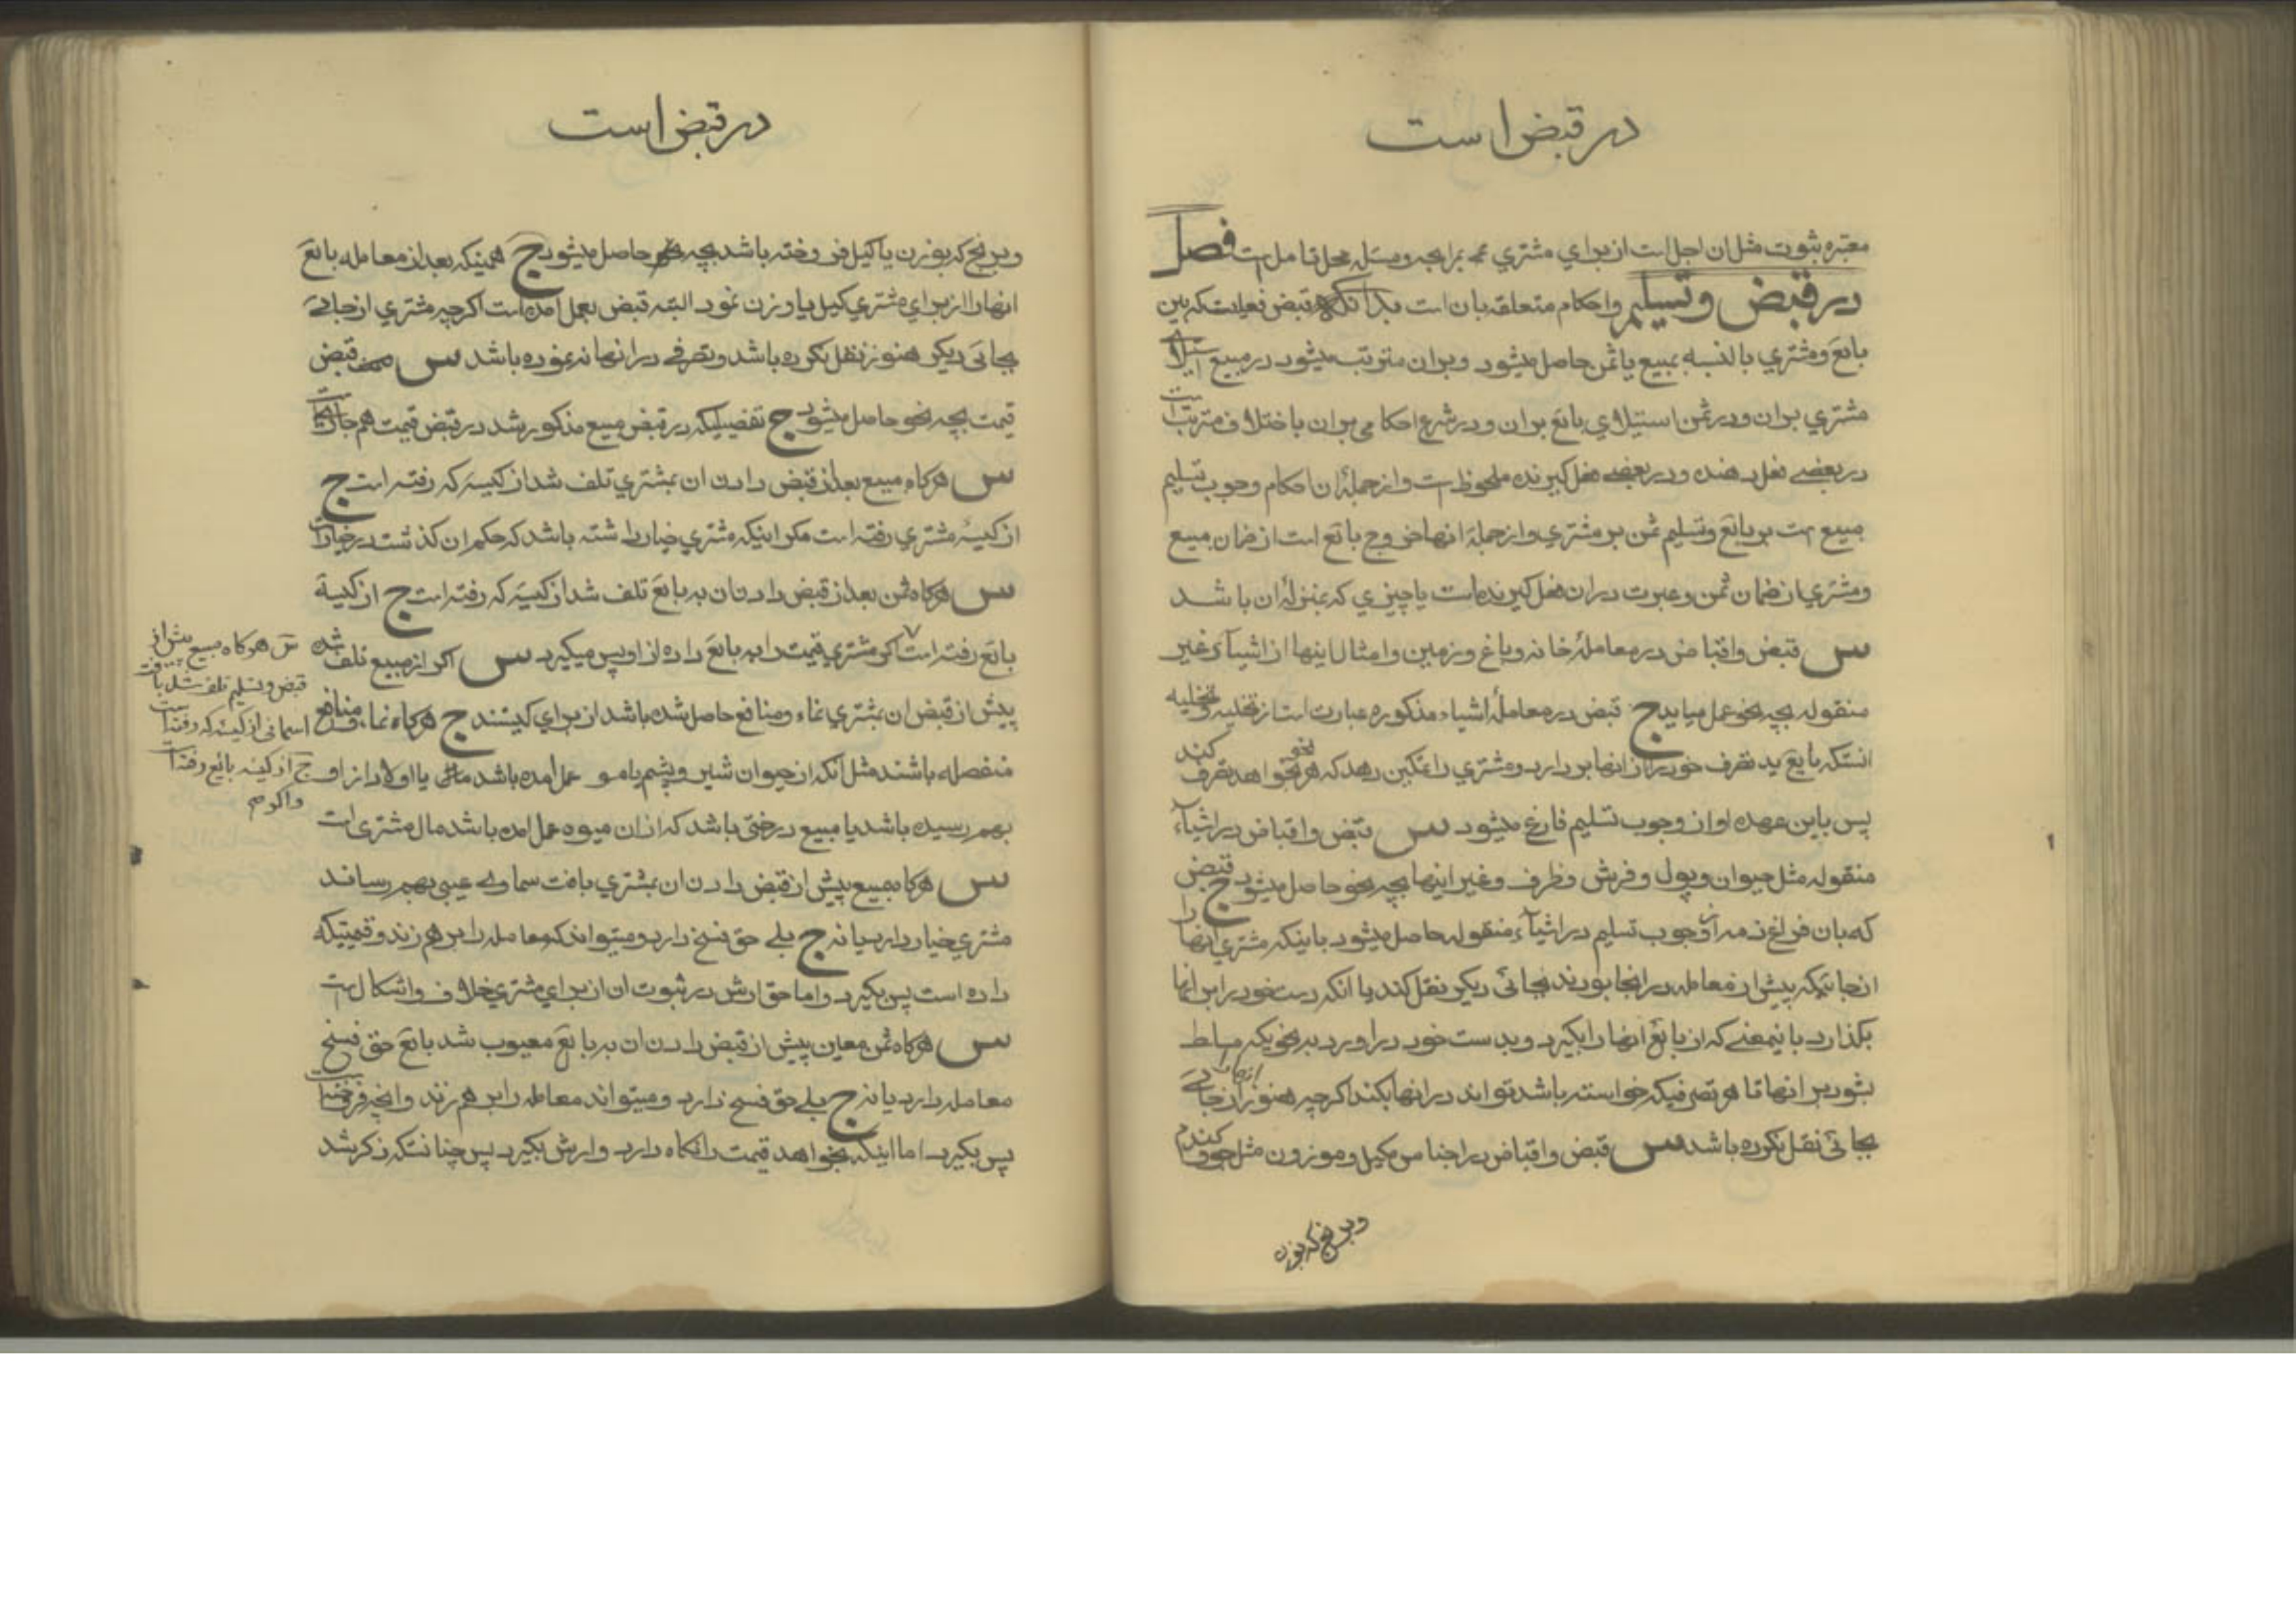 در قبض است
معتبره ثبوت مثل ان اجل است از براي مشتري در مرابحه و مسئله محل تامل است فصل
در قبض و تسليم و احكام متعلقه بان است بدانكه قبض فعليست كه بين
بائع و مشتري بالنسبه بمبيع يا ثمن حاصل ميشود و بران مترتب ميشود در مبيع استيلاي
مشتري بران و در ثمن استيلاي بائع بران و در شرع احكامي بران باختلاف مترتب است
در بعضے فعل دهنده و در بعضے فعل كيرنده ملحوظ است و از جملۀ ان احكام وجوب تسليم
مبيع است بر بائع و تسليم ثمن بر مشتري و از جملۀ انها خروج بائع است از ضمان مبيع
و مشتري از ضمان ثمن و عبرت دران فعل كيرنده است يا چيزي كه بمنزلۀ ان باشد
س قبض و اقباض در معاملۀ خانه و باغ و زمين و امثال اينها از اشياء غير
منقوله بچه نحو عمل ميايد ج قبض در معاملۀ اشياء مذكوره عبارت است از تخليه و تخليه
انستكه بايع يد تصرف خود را از انها بردارد و مشتري را تمكين دهد كه هر نحو بخواهد تصرف كند
پس باين عهده او از وجوب تسليم فارغ ميشود س قبض و اقباض در اشياء
منقوله مثل حيوان و پول و فرش و ظرف و غير اينها بچه نحو حاصل ميشود ج قبض
كه بان فراغ ذمه از وجوب تسليم در اشياء منقوله حاصل ميشود باينكه مشتري انها را
از جائيكه پيش از معامله در انجا بودند بجائي ديكر نقل كند يا انكه دست خود را بر انها
بكذارد باينمعنے كه از بائع انها را بكيرد و بدست خود دراورد بر نحويكه مسلط
بشود بر انها تا هر تصرفيكه خواسته باشد تواند در انها بكند اكرچه هنوز انها را از جائے
بجائي نقل نكرده باشد س قبض و اقباض در اجناس مكيل و موزون مثل جو و كندم
و برنج كه بوزن
در قبض است
و برنج كه بوزن يا كيل فروخته باشد بچه نحو حاصل ميشود ج همينكه بعد از معامله بائع
انها را از براي مشتري كيل يا وزن نمود البته قبض بعمل امده است اكرچه مشتري از جائے
بجائي ديكر هنوز نقل نكرده باشد و تصرفے در انها ننموده باشد س قبض
قيمت بچه نحو حاصل ميشود ج تفصيليكه در قبض مبيع مذكور شد در قبض قيمت هم جاريست
س هركاه مبيع بعد از قبض دادن ان بمشتري تلف شد از كيسۀ كه رفته است ج
از كيسۀ مشتري رفته است مكر اينكه مشتري خيار داشته باشد كه حكم ان كذشت در خيارات
س هركاه ثمن بعد از قبض دادن ان به بائع تلف شد از كيسۀ كه رفته است ج از كيسۀ
بائع رفته است اكر مشتري قيمت را به بائع داده از او پس ميكيرد س اكر از مبيع تلف شده
پيش از قبض ان بمشتري نماء و منافع حاصل شده باشد از براي كيست ج هركاه نماء و منافع
منفصله باشند مثل انكه از حيوان شير و پشم يا مو عمل امده باشد يا اولاد از او
بهم رسيده باشد يا مبيع درختي باشد كه از ان ميوه عمل امده باشد مال مشتري است
س هركاه مبيع پيش از قبض دادن ان بمشتري بافت سماوے عيبي بهم رساند
مشتري خيار دارد يا نه ج بلے حق فسخ دارد و ميتواند كه معامله را بر هم زند و قيمتيكه
داده است پس بكيرد و اما حق ارش در ثبوت ان از براي مشتري خلاف و اشكال است
س هركاه ثمن معين پيش از قبض دادن ان به بائع معيوب شد بائع حق فسخ
معامله دارد يا نه ج بلے حق فسخ دارد و ميتواند معامله را بر هم زند و انچه فروخته است
پس بكيرد اما اينكه بخواهد قيمت را نكاه دارد و ارش بكيرد پس چنانستكه ذكر شد
س هركاه مبيع پيش از
قبض و تسليم تلف شد بافت
اسماني از كيسۀ كه رفته است
ج از كيسه بائع رفته است
و اكر